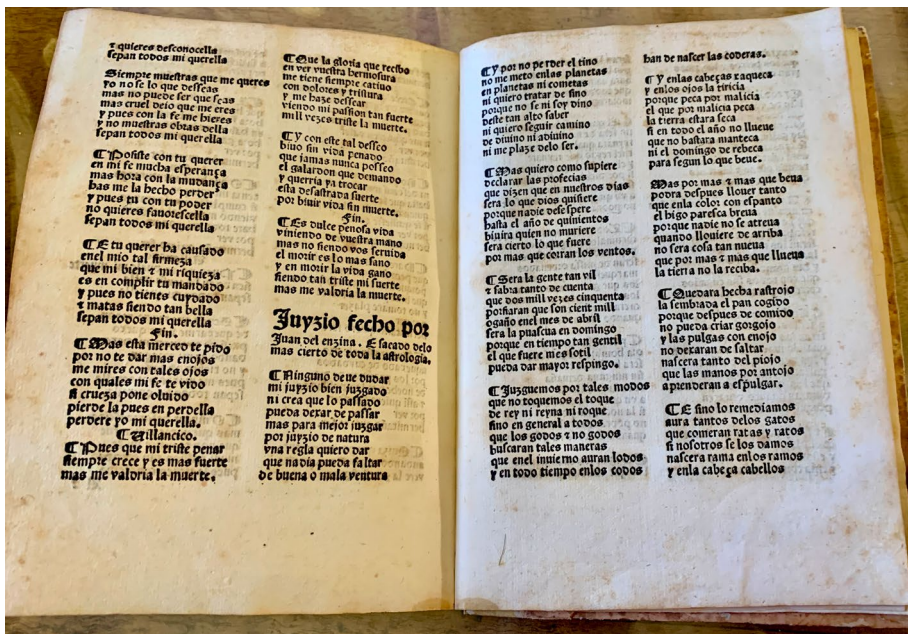 ⁊ quieres desconocella
sepan todos mi querella
Siempre muestras que me queres
yo no se lo que desseas
mas no puede ser que seas
mas cruel deio que me eres
y pues con la fe me hieres
y no muestras obras della
sepan todos mi querella
¶ Posiste con tu querer
en mi fe mucha esperança
mas hora con la mudança
has me la hecho perder
y pues tu con tu poder
no quieres fauorescella
sepan todos mi querella
¶ E tu querer ha causado
enel mio tal firmeza
que mi bien ⁊ mi riqueza
es en complir tu mandado
y pues no tienes cuydado
⁊ matas siendo tan bella
sepan todos mi querella
Fin.
¶ Mas esta merced te pido
por no te dar mas enojos
me mires con tales ojos
con quales mi fe te vido
si crueza pone oluido
pierde la pues en perdella
perdere yo mi querella.
¶ Uillancico.
¶ Pues que mi triste penar
siempre crece y es mas fuerte
mas me valdria la muerte.
¶ Que la gloria que recibo
en ver vuestra hermosura
me tiene siempre catiuo
con dolores y tristura
y me haze dessear
viendo mi passion tan fuerte
mill vezes triste la muerte.
¶ Y con este tal desseo
biuo sin vida penado
que jamas nunca posseo
el galardon que demando
y querria ya trocar
esta desastrada suerte
por biuir vida sin muerte.
Fin.
¶ Es dulce penosa vida
viniendo de vuestra mano
mas no siendo vos seruida
el morir es lo mas sano
y en morir la vida gano
siendo tan triste mi suerte
mas me valdria la muerte.
Juyzio fecho por
Juan del enzina. E sacado delo
mas cierto de toda la astrologia.
¶ Ninguno deue dudar
mi juyzio bien juzgado
ni crea que lo passado
pueda dexar de passar
mas para mejor juzgar
por juyzio de natura
vna regla quiero dar
que nadia pueda faltar
de buena o mala ventura
¶ Y por no perder el tino
no me meto enlas planetas
en planetas ni cometas
ni quiero tratar de sino
porque no se ni soy dino
deste tan alto saber
ni quiero seguir camino
de diuino ni adiuino
ni me plaze delo ser.
¶ Mas quiero como supiere
declarar las profecias
que dizen que en nuestros dias
sera lo que dios quisiere
porque nadie desespere
hasta el año de quinientos
biuira quien no muriere
sera cierto lo que fuere
por mas que corran los ventos.
¶ Sera la gente tan vil
⁊ sabra tanto de cuenta
que dos mill vezes cinquenta
porfiaran que son cient mill
ogaño enel mes de abril
sera la pascua en domingo
porque en tiempo tan gentil
el que fuere mes sotil
pueda dar mayor respingo.
¶ Juzguemos por tales modos
que no toquemos el toque
de rey ni reyna ni roque
sino en general a todos
que los godos y no godos
buscaran tales maneras
que enel inuierno auran lodos
y en todo tiempo enlos codos
han de nascer las coderas.
¶ Y enlas cabeças xaqueca
y enlos ojos la tiricia
porque peca por malicia
el que por malicia peca
la tierra estara seca
si en todo el año no llueue
que no bastara manteca
ni el domingo de rebeca
para segun lo que beue.
Mas por mas ⁊ mas que beua
podra despues llouer tanto
que enla color con espanto
el higo paresca breua
porque nadie no se atreua
quando llouiere de arriba
no sera cosa tan nueua
que por mas ⁊ mas que llueua
la tierra no la reciba.
¶ Quedara hecha rastrojo
la sembrada el pan cogido
porque despues de comido
no pueda criar gorgojo
y las pulgas con enojo
no dexaran de saltar
nascera tanto del piojo
que las manos por antojo
aprenderan a espulgar.
¶ E sino lo remediamos
aura tantos delos gatos
que comeran ratas y ratos
si nosotros se los damos
nascera rama enlos ramos
y enla cabeça cabellos